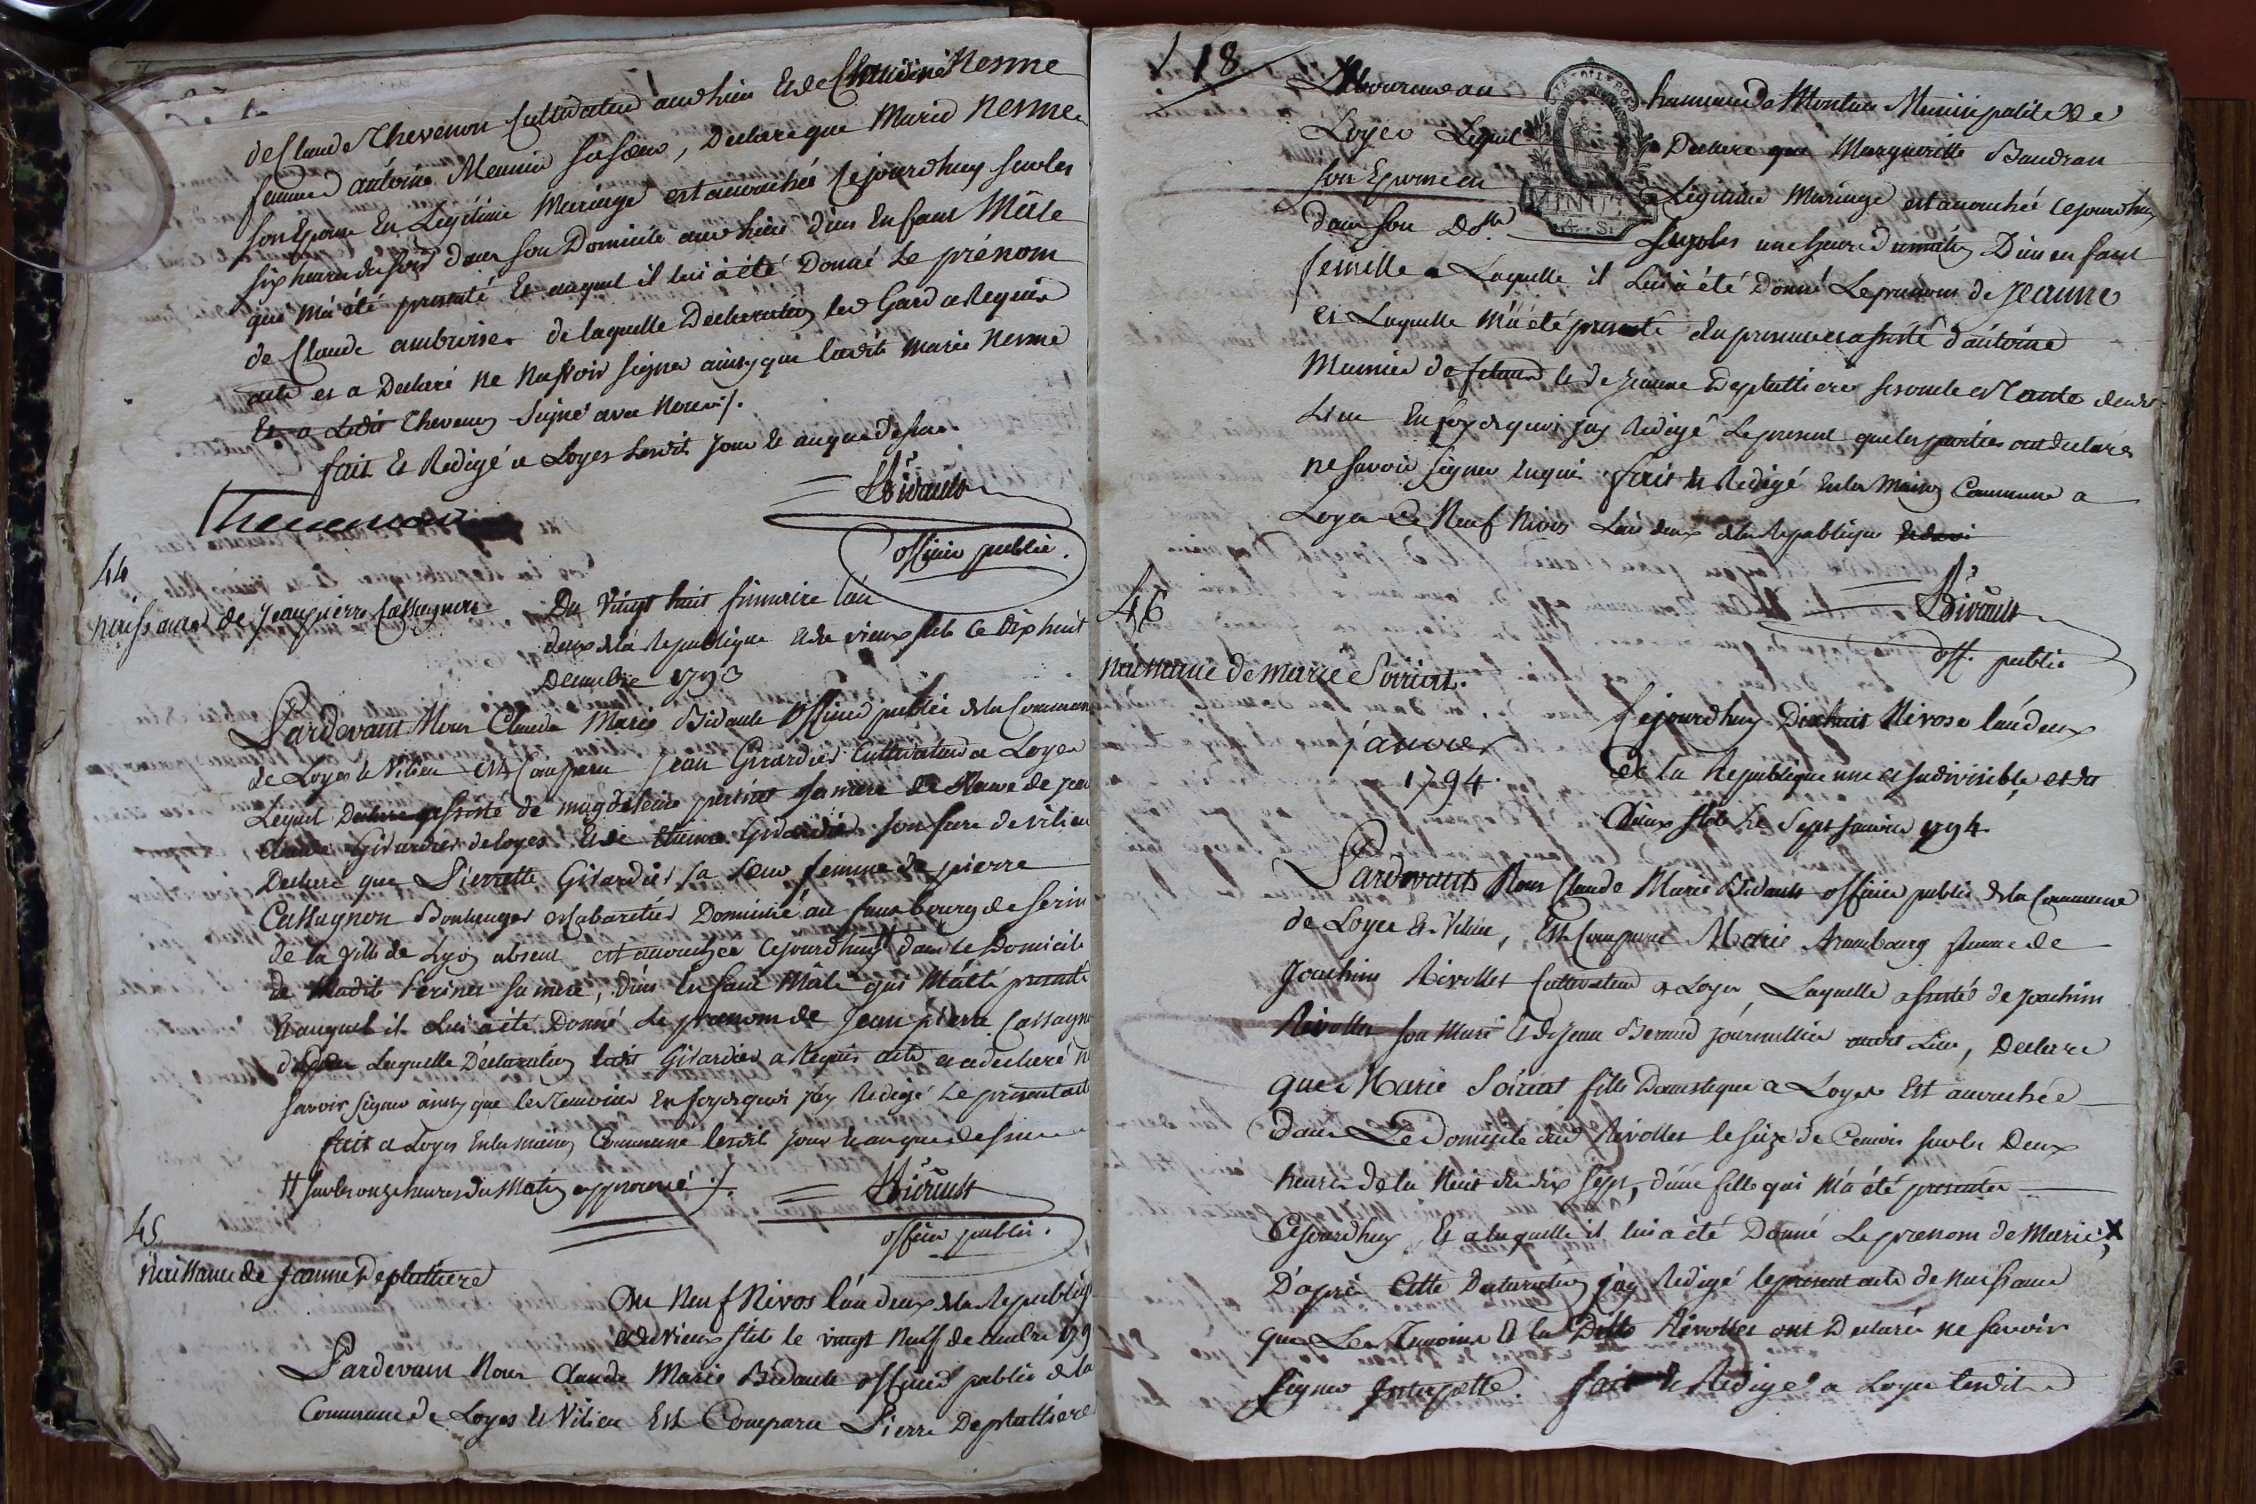 de Claude Thevenon Cultivateur audit lieu Et de Claudine Nesme
femme d'antoine Meunier sa soeur, Declare que Marie Nesme
son Epouse En Legitime Mariage est accouchée Cejourdhuy sur les
six heures du soir dans son Domicile audit lieu d'un Enfant Mâle
qui m'a été presenté Et auquel il lui a été Donné Le prénom
de Claude ambroise de laquelle Declaration led Gard a Requis
acte et a Declaré ne Savoir signer ainsy que ladite Marie Nesme
Et a Ledit Thevenon Signé avec Nous ./.
fait Et Redigé a Loyes Lesdit jour Et an que dessus
Bidault
Thevenon
officier public.
44
naissance de Jean pierre Cassagnon
Du Vingt huit frimaire l'an
deux de la Republique Et du vieux stile Ce Dix huit
Decembre 1793
Pardevant Nous Claude Marie Bidault Officier public de la Commune
de Loyes Et Vilieu Est Comparu Jean Girardier Cultivateur a Loyes
Lequel Declare assisté de magdeleine perinet sa mere Veuve de
Claude Girardier de loyes Et de Etienne Girardier son frere de vilieu
Declare que Pierrette Girardier sa soeur femme de pierre
Cassagnon Boulanger et Cabaretier Domicilié au fauxbourg de Serin
de la Ville de Lyon absent est accouchee Cejourdhuy dans le Domicile
de ladite Perinet sa mere, d'un Enfant Mâle qui M'a été presenté
Et auquel il lui a été Donné Le prenom de Jean pierre Cassagnon
Laquelle Declaration ledit Girardier a Requis acte et a declaré ne
savoir signer ainsy que les Temoins En foy de quoi j'ay Redigé Le present acte
fait a Loyes En la maison Commune lesdit jour Et an que dessus
# sur les onze heures du Matin approuvé ./.
Bidault
officier public.
45
Naissance de Jeanne Deplattiere
Du Neuf Nivos l'an deux de la Republique
et du vieux stile le vingt Neuf decembre 179
Pardevant Nous Claude Marie Bidault officier public de la
Commune de Loyes Et Vilieu Est Comparu Pierre Deplattiere
118
Laboureur au hameau de Montu Municipalité de
Loyes Lequel Declare que Marguerite Baudran
son Epouse en Légitime Mariage est accouchée cejourdhuy
dans son Dlle Sur les une heure du matin D'un enfant
femelle a Laquelle il Lui a été Donné Le prenom de Jeanne
et Laquelle M'a été presenté En presence et assisté d'antoine
Meunier de Et de Jeanne Deplattiere son oncle et Tante dudit
Lieu En foy de quoi j'ay Redigé Le present que les parties ont declaré
ne Savoir signer Enquis fait Et Redigé En la Maison Commune a
Loyes Le Neuf Nivos L'an deux de la Republique
Bidault
off. public
46
Naissance de Marie Soiriat.
janvier
1794.
Cejourdhuy Dixhuit Nivose l'an deux
de la Republique une et indivisible et du
vieux stile Le Sept Janvier 1794.
Pardevant Nous Claude Marie Bidault officier public de la Commune
de Loyes Et Vilieu, Est Comparue Marie Arambourg femme de
Joachim Rivollet Cultivateur a Loyes Laquelle assistée de Joachim
Rivollet son Mari Et de Jean Beraud Journallier audit Lieu, Declare
que Marie Soiriat fille Domestique a Loyes Est accouchée
dans Le Domicile dud Rivollet le seize de Cemois sur les Deux
heures de la Nuit du dix sept, d'une fille qui M'a été presentée
Cejourdhuy Et a laquelle il lui a été Donné Le prenom de Marie X
D'après Cette Declaration j'ay Redigé le present acte de naissance
que Les Temoins Et la Ditte Rivollet ont Declaré ne savoir
signer Interpellé. fait Et Redigé a Loyes Lesdit